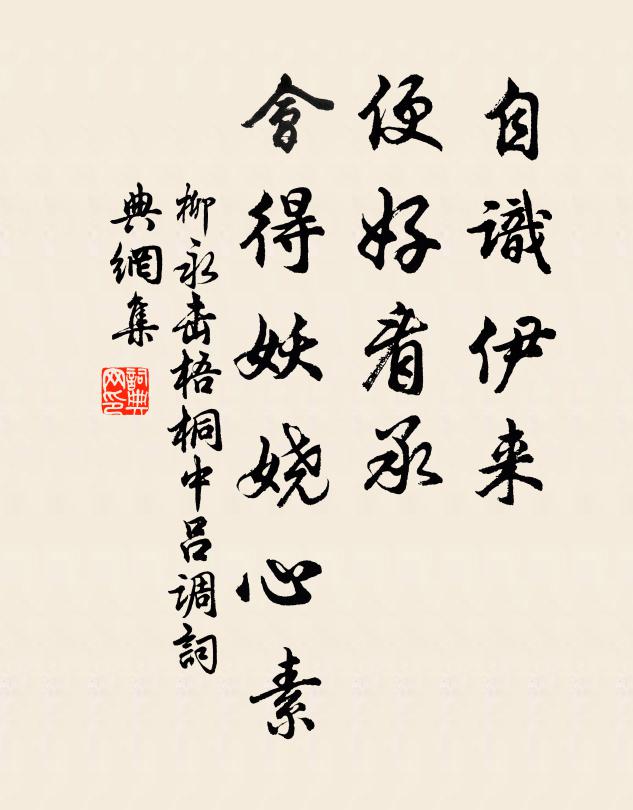 自識伊来
便好看承
會得妖嬈心素
柳永击梧桐中吕调詞
典網集
詞典
网印